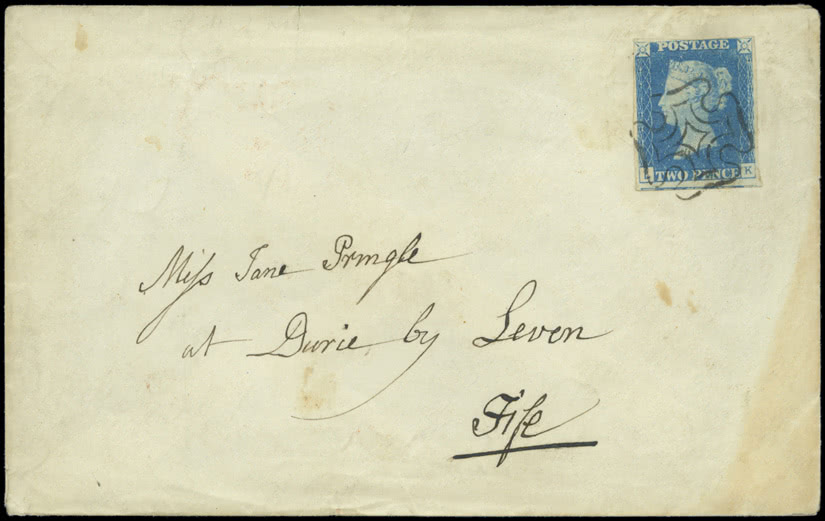 POSTAGE
TWO PENCE K
Miſs Jane Pringle
at Durie by Leven
Fife